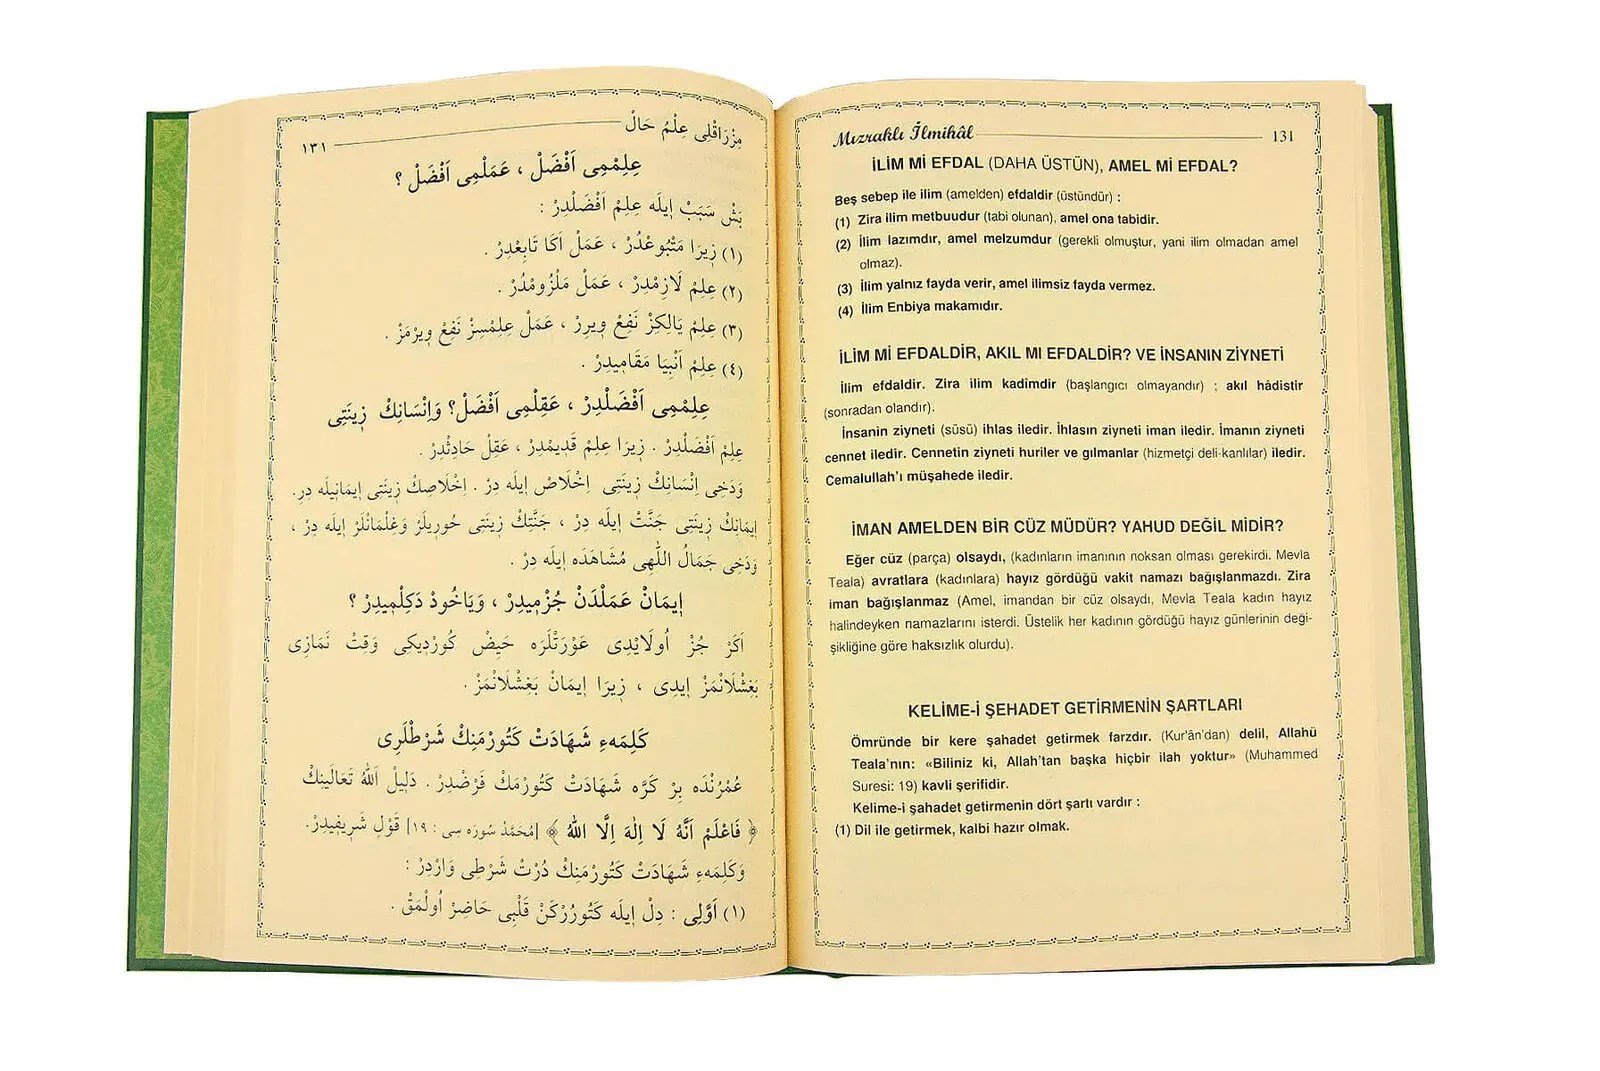 مِزْرَاقْلِى عِلْمُ حَالْ ١٣١
عِلِمْمِى اَفْضَلْ ، عَمَلْمِى اَفْضَلْ ؟
بَشْ سَبَبْ اِيلَه عِلِمْ اَفْضَلْدِرْ :
(١) زِيرَا مَتْبُوعْدُرْ ، عَمَلْ اَكَا تَابِعْدِرْ .
(٢) عِلِمْ لَازِمْدِرْ ، عَمَلْ مَلْزُومْدُرْ .
(٣) عِلِمْ يَالِكِزْ نَفِعْ وِيرِرْ ، عَمَلْ عِلِمْسِزْ نَفِعْ وِيرْمَزْ .
(٤) عِلِمْ اَنْبِيَا مَقَامِيدِرْ .
عِلِمْمِى اَفْضَلْدِرْ ، عَقِلْمِى اَفْضَلْ؟ وَاِنْسَانِكْ زِينَتِى
عِلِمْ اَفْضَلْدِرْ . زِيرَا عِلِمْ قَدِيمْدِرْ ، عَقِلْ حَادِثْدِرْ .
وَدَخِى اِنْسَانِكْ زِينَتِى اِخْلَاصْ اِيلَه دِرْ . اِخْلَاصِكْ زِينَتِى اِيمَانِيلَه دِرِ.
اِيمَانِكْ زِينَتِى جَنَّتْ اِيلَه دِرْ ، جَنَّتِكْ زِينَتِى حُورِيلَرْ وَغِلْمَانْلَرْ اِيلَه دِرْ ،
وَدَخِى جَمَالُ اللّٰهِى مُشَاهَدَه اِيلَه دِرْ .
اِيمَانْ عَمَلْدَنْ جُزْمِيدِرْ ، وَيَاخُودْ دَكِلْمِيدِرْ ؟
اَكَرْ جُزْ اُولَايْدِى عَوْرَتْلَرَه حَيِضْ كُورْدِيكِى وَقِتْ نَمَازِى
بَغِشْلَانْمَزْ اِيدِى ، زِيرَا اِيمَانْ بَغِشْلَانْمَزْ .
كَلِمَهءِ شَهَادَتْ كَتُورْمَنِكْ شَرْطْلَرِى
عُمْرُنْدَه بِرْ كَرَّه شَهَادَتْ كَتُورْمَكْ فَرْضْدِرْ . دَلِيلْ اَللّٰهُ تَعَالَينِكْ
﴿ فَاعْلَمْ اَنَّهُ لَا اِلٰهَ اِلَّا اللّٰهُ ﴾ [مُحَمَّدْ سُورَه سِى : ١٩] قَوْلِ شَرِيفِيدِرْ.
وَكَلِمَهءِ شَهَادَتْ كَتُورْمَنِكْ دُرْتْ شَرْطِى وَارْدِرْ :
(١) اَوَّلِى : دِلْ اِيلَه كَتُورُرْكَنْ قَلْبِى حَاضِرْ اُولْمَقْ .
Mızraklı İlmihâl 131
İLİM Mİ EFDAL (DAHA ÜSTÜN), AMEL Mİ EFDAL?
Beş sebep ile ilim (amelden) efdaldir (üstündür) :
(1) Zira ilim metbuudur (tabi olunan), amel ona tabidir.
(2) İlim lazımdır, amel melzumdur (gerekli olmuştur, yani ilim olmadan amel
olmaz).
(3) İlim yalnız fayda verir, amel ilimsiz fayda vermez.
(4) İlim Enbiya makamıdır.
İLİM Mİ EFDALDİR, AKIL MI EFDALDİR? VE İNSANIN ZİYNETİ
İlim efdaldir. Zira ilim kadimdir (başlangıcı olmayandır) ; akıl hâdistir
(sonradan olandır).
İnsanin ziyneti (süsü) ihlas iledir. İhlasın ziyneti iman iledir. İmanın ziyneti
cennet iledir. Cennetin ziyneti huriler ve gılmanlar (hizmetçi deli-kanlılar) iledir.
Cemalullah'ı müşahede iledir.
İMAN AMELDEN BİR CÜZ MÜDÜR? YAHUD DEĞİL MİDİR?
Eğer cüz (parça) olsaydı, (kadınların imanının noksan olması gerekirdi. Mevla
Teala) avratlara (kadınlara) hayız gördüğü vakit namazı bağışlanmazdı. Zira
iman bağışlanmaz (Amel, imandan bir cüz olsaydı, Mevla Teala kadın hayız
halindeyken namazlarını isterdi. Üstelik her kadının gördüğü hayız günlerinin deği-
şikliğine göre haksızlık olurdu).
KELİME-İ ŞEHADET GETİRMENİN ŞARTLARI
Ömründe bir kere şahadet getirmek farzdır. (Kur'ân'dan) delil, Allahü
Teala'nın: «Biliniz ki, Allah'tan başka hiçbir ilah yoktur» (Muhammed
Suresi: 19) kavli şerifidir.
Kelime-i şahadet getirmenin dört şartı vardır :
(1) Dil ile getirmek, kalbi hazır olmak.